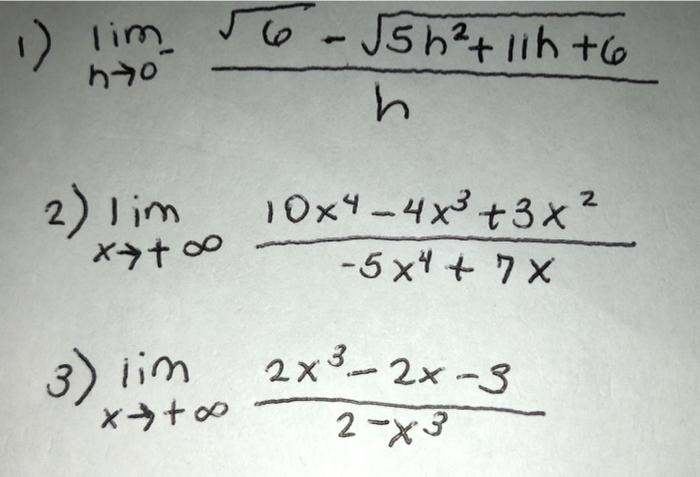 1) lim h→0⁻ (√6 - √(5h²+11h+6)) / h
2) lim x→+∞ (10x⁴-4x³+3x²) / (-5x⁴+7x)
3) lim x→+∞ (2x³-2x-3) / (2-x³)